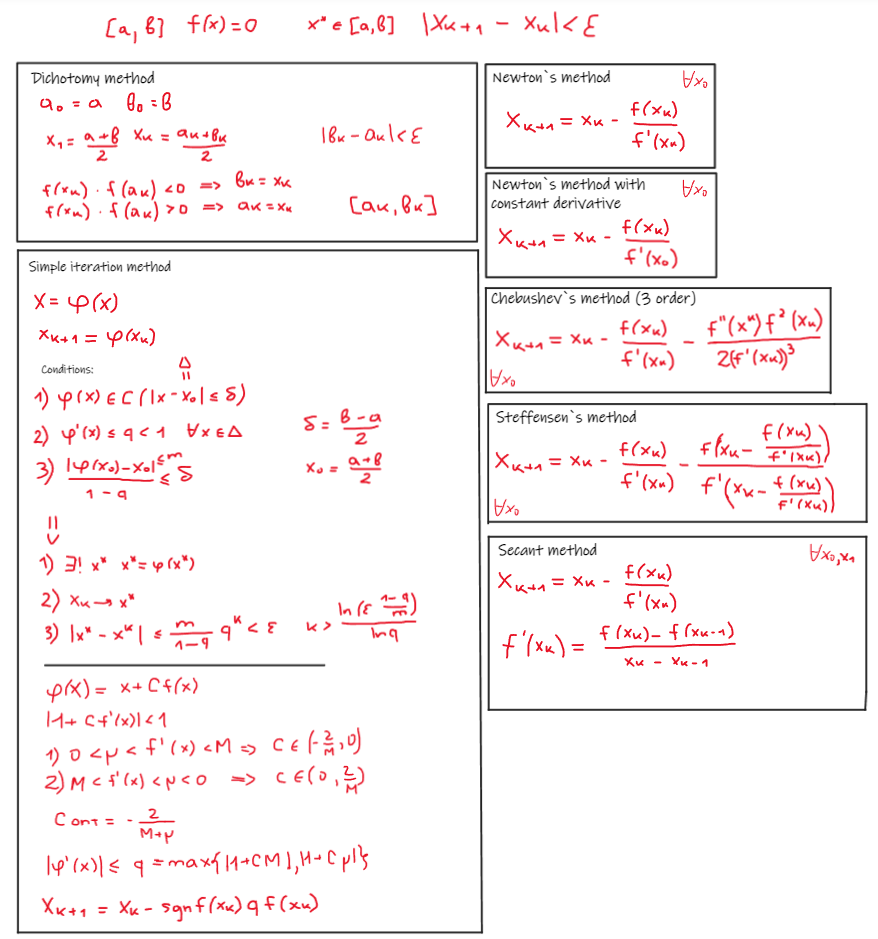 [a, b] f(x) = 0 x* ∈ [a, b] |xₖ₊₁ − xₖ| < ε
Dichotomy method
a₀ = a b₀ = b
x₁ = (a+b)/2 xₖ = (aₖ+bₖ)/2 |bₖ − aₖ| < ε
f(xₖ) · f(aₖ) < 0 => bₖ = xₖ
f(xₖ) · f(aₖ) > 0 => aₖ = xₖ [aₖ, bₖ]
Simple iteration method
x = φ(x)
xₖ₊₁ = φ(xₖ)
Conditions:
Δ
=
1) φ(x) ∈ C(|x − x₀| ≤ δ)
2) φ'(x) ≤ q < 1 ∀x ∈ Δ δ = (b − a)/2
3) |φ(x₀) − x₀|^{≤m}/(1 − q) ≤ δ x₀ = (a+b)/2
=>
1) ∃! x* x* = φ(x*)
2) xₖ → x*
3) |x* − xᵏ| ≤ m/(1−q) qᵏ < ε k > ln(ε (1−q)/m)/ln q
φ(x) = x + Cf(x)
|1 + Cf'(x)| < 1
1) 0 < μ < f'(x) < M => C ∈ (−2/M, 0)
2) M < f'(x) < μ < 0 => C ∈ (0, 2/M)
C опт = − 2/(M+μ)
|φ'(x)| ≤ q = max{|1+CM|, |1+Cμ|}
xₖ₊₁ = xₖ − sgn f(xₖ) q f(xₖ)
Newton`s method ∀x₀
xₖ₊₁ = xₖ − f(xₖ)/f'(xₖ)
Newton`s method with ∀x₀
constant derivative
xₖ₊₁ = xₖ − f(xₖ)/f'(x₀)
Chebushev`s method (3 order)
xₖ₊₁ = xₖ − f(xₖ)/f'(xₖ) − f''(xᵏ) f²(xₖ)/2(f'(xₖ))³
∀x₀
Steffensen`s method
xₖ₊₁ = xₖ − f(xₖ)/f'(xₖ) − f(xₖ − f(xₖ)/f'(xₖ))/f'(xₖ − f(xₖ)/f'(xₖ))
∀x₀
Secant method ∀x₀, x₁
xₖ₊₁ = xₖ − f(xₖ)/f'(xₖ)
f'(xₖ) = (f(xₖ) − f(xₖ₋₁))/(xₖ − xₖ₋₁)